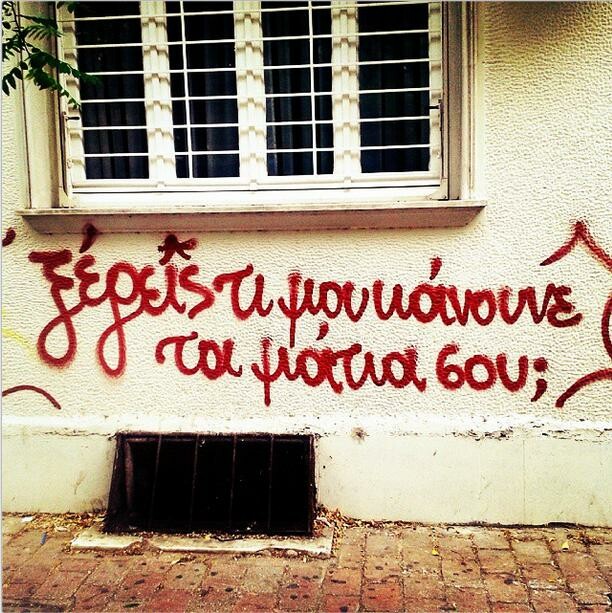 ξέρεις τι μου κάνουνε
τα μάτια σου;